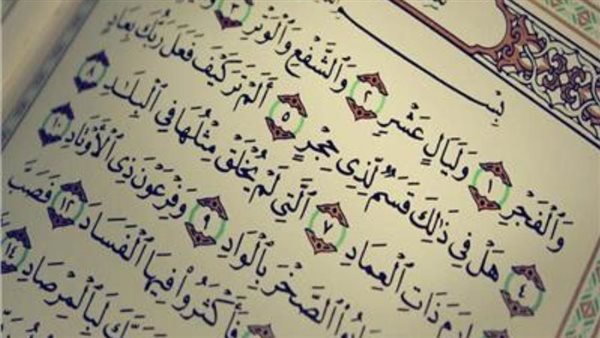 وَٱلْفَجْرِ ١ وَلَيَالٍ عَشْرٍ ٢ وَٱلشَّفْعِ وَٱلْوَتْرِ ٣
٤ هَلْ فِى ذَٰلِكَ قَسَمٌ لِّذِى حِجْرٍ ٥ أَلَمْ تَرَ كَيْفَ فَعَلَ رَبُّكَ بِعَادٍ
ذَاتِ ٱلْعِمَادِ ٧ ٱلَّتِى لَمْ يُخْلَقْ مِثْلُهَا فِى ٱلْبِلَٰدِ ٨
ٱلصَّخْرَ بِٱلْوَادِ ٩ وَفِرْعَوْنَ ذِى ٱلْأَوْتَادِ ١٠
فَأَكْثَرُوا۟ فِيهَا ٱلْفَسَادَ ١٢ فَصَبَّ
لَبِٱلْمِرْصَادِ ١٤